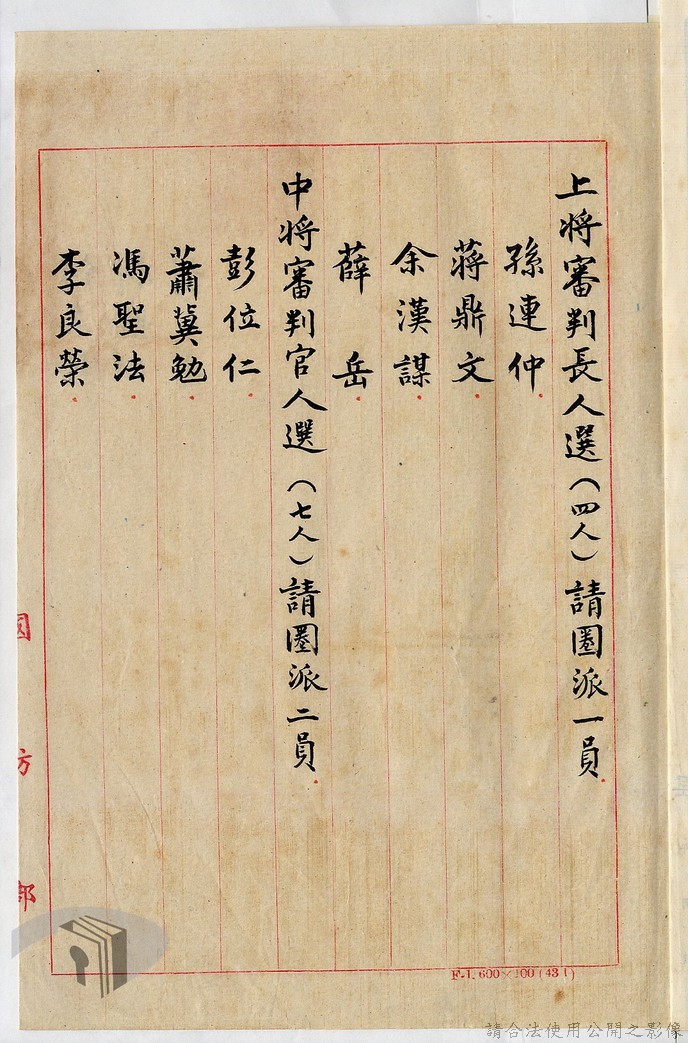 上將審判長人選（四人）請圈派一員
孫連仲
蔣鼎文
余漢謀
薛岳
中將審判官人選（七人）請圈派二員
彭位仁
蕭冀勉
馮聖法
李良榮
國防部
F-1. 600×100(43 1)
請合法使用公開之影像